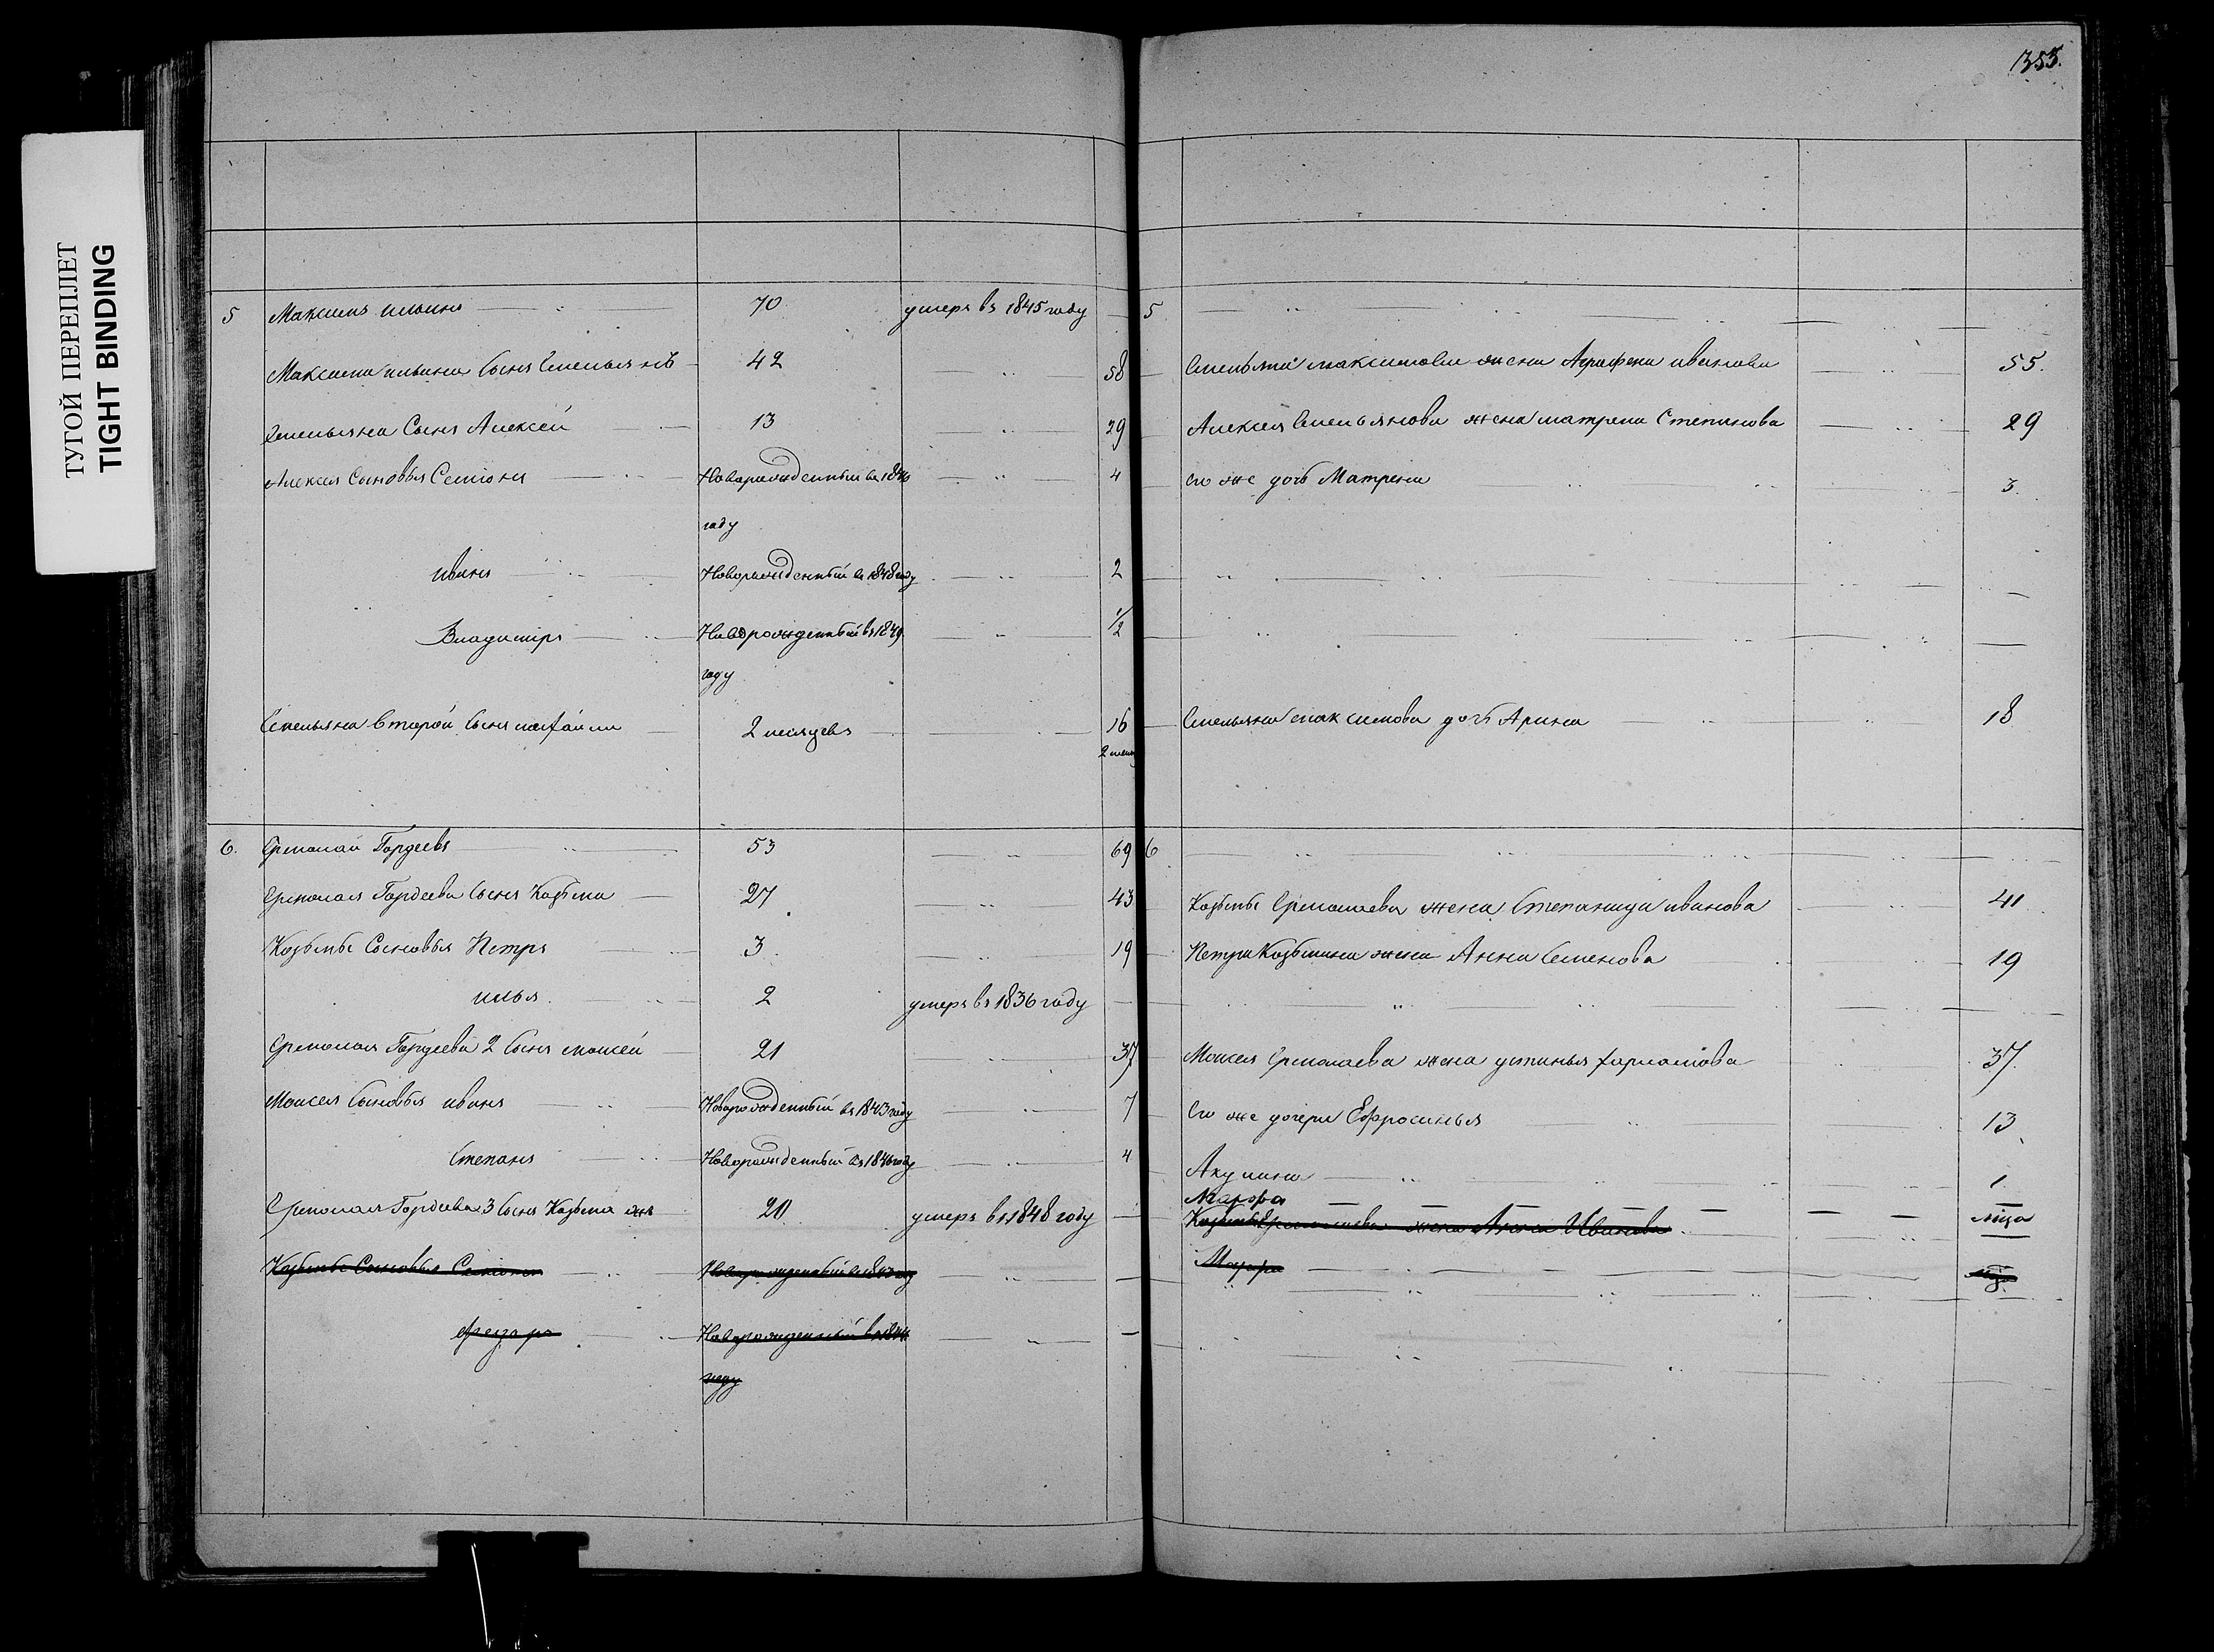 ТУГОЙ ПЕРЕПЛЕТ
TIGHT BINDING
355.
5 Максимъ ильинъ 70 умеръ въ 1845 году
Максима ильина Сынъ Емельянъ 42 58
Емельяна Сынъ Алексей 13 29
Алексея Сыновья Семионъ Новорожденный въ 1846 4
году
иванъ Новорожденный въ 1848 году 2
Владимиръ Новорожденный въ 1849 1/2
году
Емельяна второй Сынъ 2 месяцевъ 16
2 месяц
6. Ермолай Гордеевъ 53 69
Ермолая Гордеева Сынъ Козьма 27 43
Козьмы Сыновья Петръ 3. 19
илья. 2 умеръ въ 1836 году
Ермолая Гордеева 2 Сынъ моисей 21 37
Моисея Сыновья иванъ Новорожденный въ 1843 году 7
Степанъ Новорожденный въ 1846 году 4
Ермолая Гордеева 3 Сынъ Козьма же 20 умеръ въ 1848 году
Козьмы Сыновья Семионъ Новорожденный въ
Новорожденный въ
году
5
Емельяна максимова жена Аграфена иванова 55.
Алексея Емельянова жена матрена Степанова 29
его же дочь Матрена 3.
Емельяна максимова дочь Арина 18
6
Козьмы Ермолаева жена Степанида иванова 41
Петра Козьмина жена Анна Семенова 19
Моисея Ермолаева жена устинья 37.
его же дочери Ефросинья 13
Акулина 1.
Марфа
Козьмы Ермолаева жена Анна Иванова
Марфа